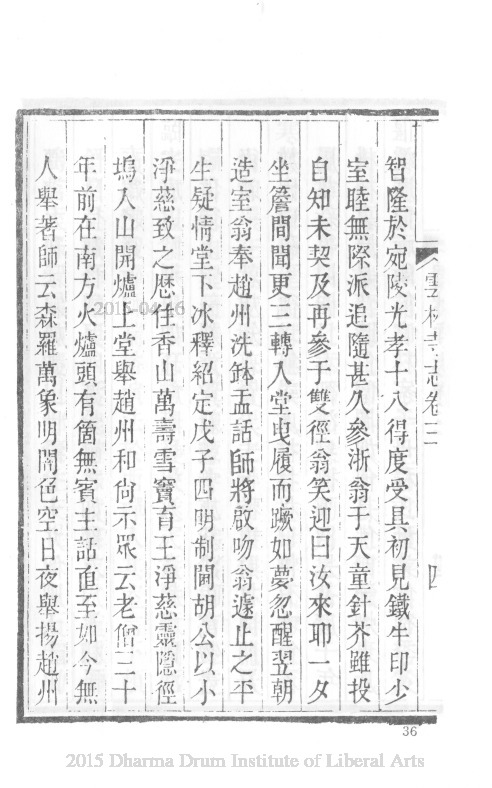 雲林寺志卷三
四
智隆於宛陵光孝十八得度受具初見鐵牛印少
室睦無際派追隨甚久參浙翁于天童針芥雖投
自知未契及再參于雙徑翁笑迎曰汝來耶一夕
坐簷間聞更三轉入堂曳履而蹶如夢忽醒翌朝
造室翁奉趙州洗鉢盂話師將啟吻翁遽止之平
生疑情堂下冰釋紹定戊子四明制閫胡公以小
淨慈致之歷住香山萬壽雪竇育王淨慈靈隱徑
塢入山開爐上堂舉趙州和尙示眾云老僧三十
年前在南方火爐頭有箇無賓主話直至如今無
人舉著師云森羅萬象明闇色空日夜舉揚趙州
2015-04-16
36
2015 Dharma Drum Institute of Liberal Arts